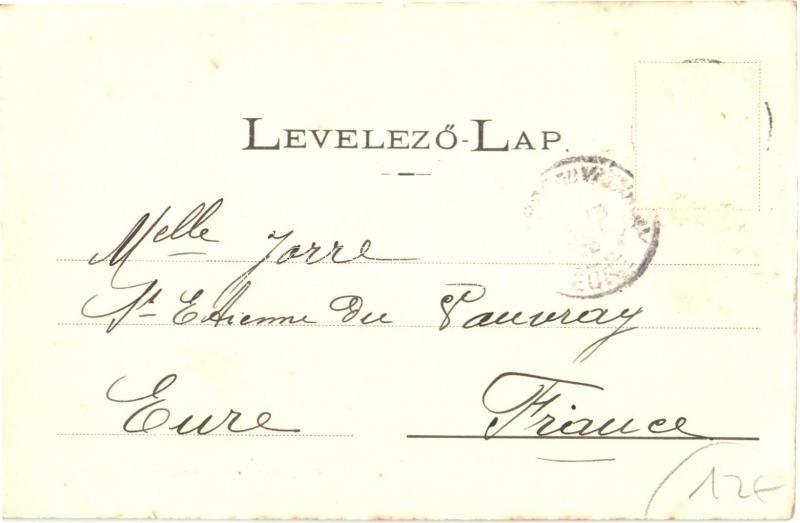 LEVELEZŐ-LAP.
Melle Jorre
St Etienne du Vauvray
Eure France
EURE
12€